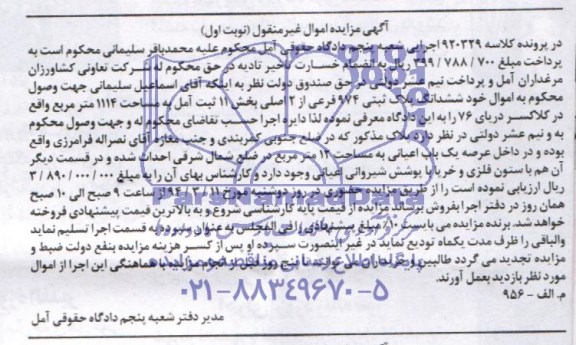 آگهی مزایده اموال غیرمنقول (نوبت اول)
در پرونده کلاسه ۹۲۰۳۲۹ اجرایی شعبه پنجم دادگاه حقوقی آمل محکوم علیه محمدباقر سلیمانی محکوم است به
پرداخت مبلغ ۳۹۹/۷۸۸/۷۰۰ ریال به انضمام خسارت تأخیر تادیه در حق محکوم له شرکت تعاونی کشاورزان
مرغداران آمل و پرداخت نیم عشر دولتی در حق صندوق دولت نظر به اینکه آقای اسماعیل سلیمانی جهت وصول
محکوم به اموال خود ششدانگ پلاک ثبتی ۹۷۴ فرعی از ۲ اصلی بخش ۱۱ ثبت آمل به مساحت ۱۱۱۴ متر مربع واقع
در کلاکسر دریای ۷۶ را به این دادگاه معرفی نموده لذا دایره اجرا حسب تقاضای محکوم له و جهت وصول محکوم
به و نیم عشر دولتی در نظر دارد پلاک مذکور که در ضلع جنوبی کمربندی و جنب مغازه آقای نصراله فرامرزی واقع
بوده و در داخل عرصه یک باب اعیانی به مساحت ۱۲ متر مربع در ضلع شمال شرقی احداث شده و در قسمت دیگر
آن هم با ستون فلزی و خرپا با پوشش شیروانی اعیانی وجود دارد و کارشناس بهای آن را به مبلغ ۳/۸۹۰/۰۰۰/۰۰۰
ریال ارزیابی نموده است را از طریق مزایده حضوری در روز دوشنبه مورخ ۹۴/۳/۱۱ از ساعت ۹ صبح الی ۱۰ صبح
همان روز در دفتر اجرا بفروش برساند مزایده از قیمت پایه کارشناسی شروع و به بالاترین قیمت پیشنهادی فروخته
خواهد شد. برنده مزایده می بایست ۱۰٪ مبلغ پیشنهادی را فی المجلس به عنوان سپرده به قسمت اجرا تسلیم نماید
والباقی را ظرف مدت یکماه تودیع نماید در غیر اینصورت سپرده او پس از کسر هزینه مزایده بنفع دولت ضبط و
مزایده تجدید می گردد طالبین و خریداران می توانند پنج روز قبل از انجام مزایده با هماهنگی این اجرا از اموال
مورد نظر بازدید بعمل آورند.
م. الف - ۹۵۶
مدیر دفتر شعبه پنجم دادگاه حقوقی آمل
ParsNamadData
پایگاه اطلاع رسانی مناقصه مزایده
۰۲۱-۸۸۳۴۹۶۷۰-۵